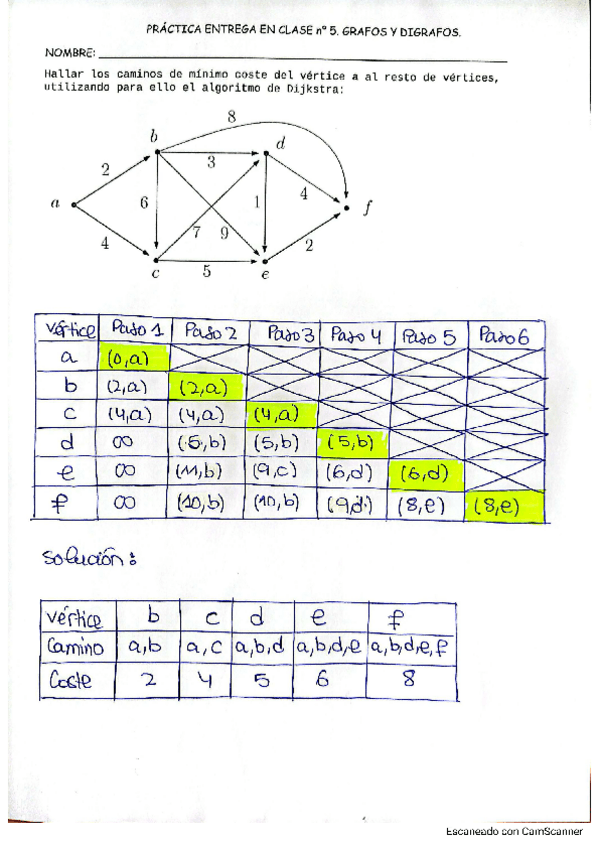 PRÁCTICA ENTREGA EN CLASE nº 5. GRAFOS Y DIGRAFOS.
NOMBRE:
Hallar los caminos de mínimo coste del vértice a al resto de vértices,
utilizando para ello el algoritmo de Dijkstra:
8
b d
2 3
a 6 1 4 f
4 7 9 2
5
c e
vértice Paso 1 Paso 2 Paso 3 Paso 4 Paso 5 Paso 6
a (0,a)
b (2,a) (2,a)
c (4,a) (4,a) (4,a)
d ∞ (5,b) (5,b) (5,b)
e ∞ (11,b) (9,c) (6,d) (6,d)
f ∞ (10,b) (10,b) (9,d) (8,e) (8,e)
solución:
vértice b c d e f
Camino a,b a,c a,b,d a,b,d,e a,b,d,e,f
Coste 2 4 5 6 8
Escaneado con CamScanner